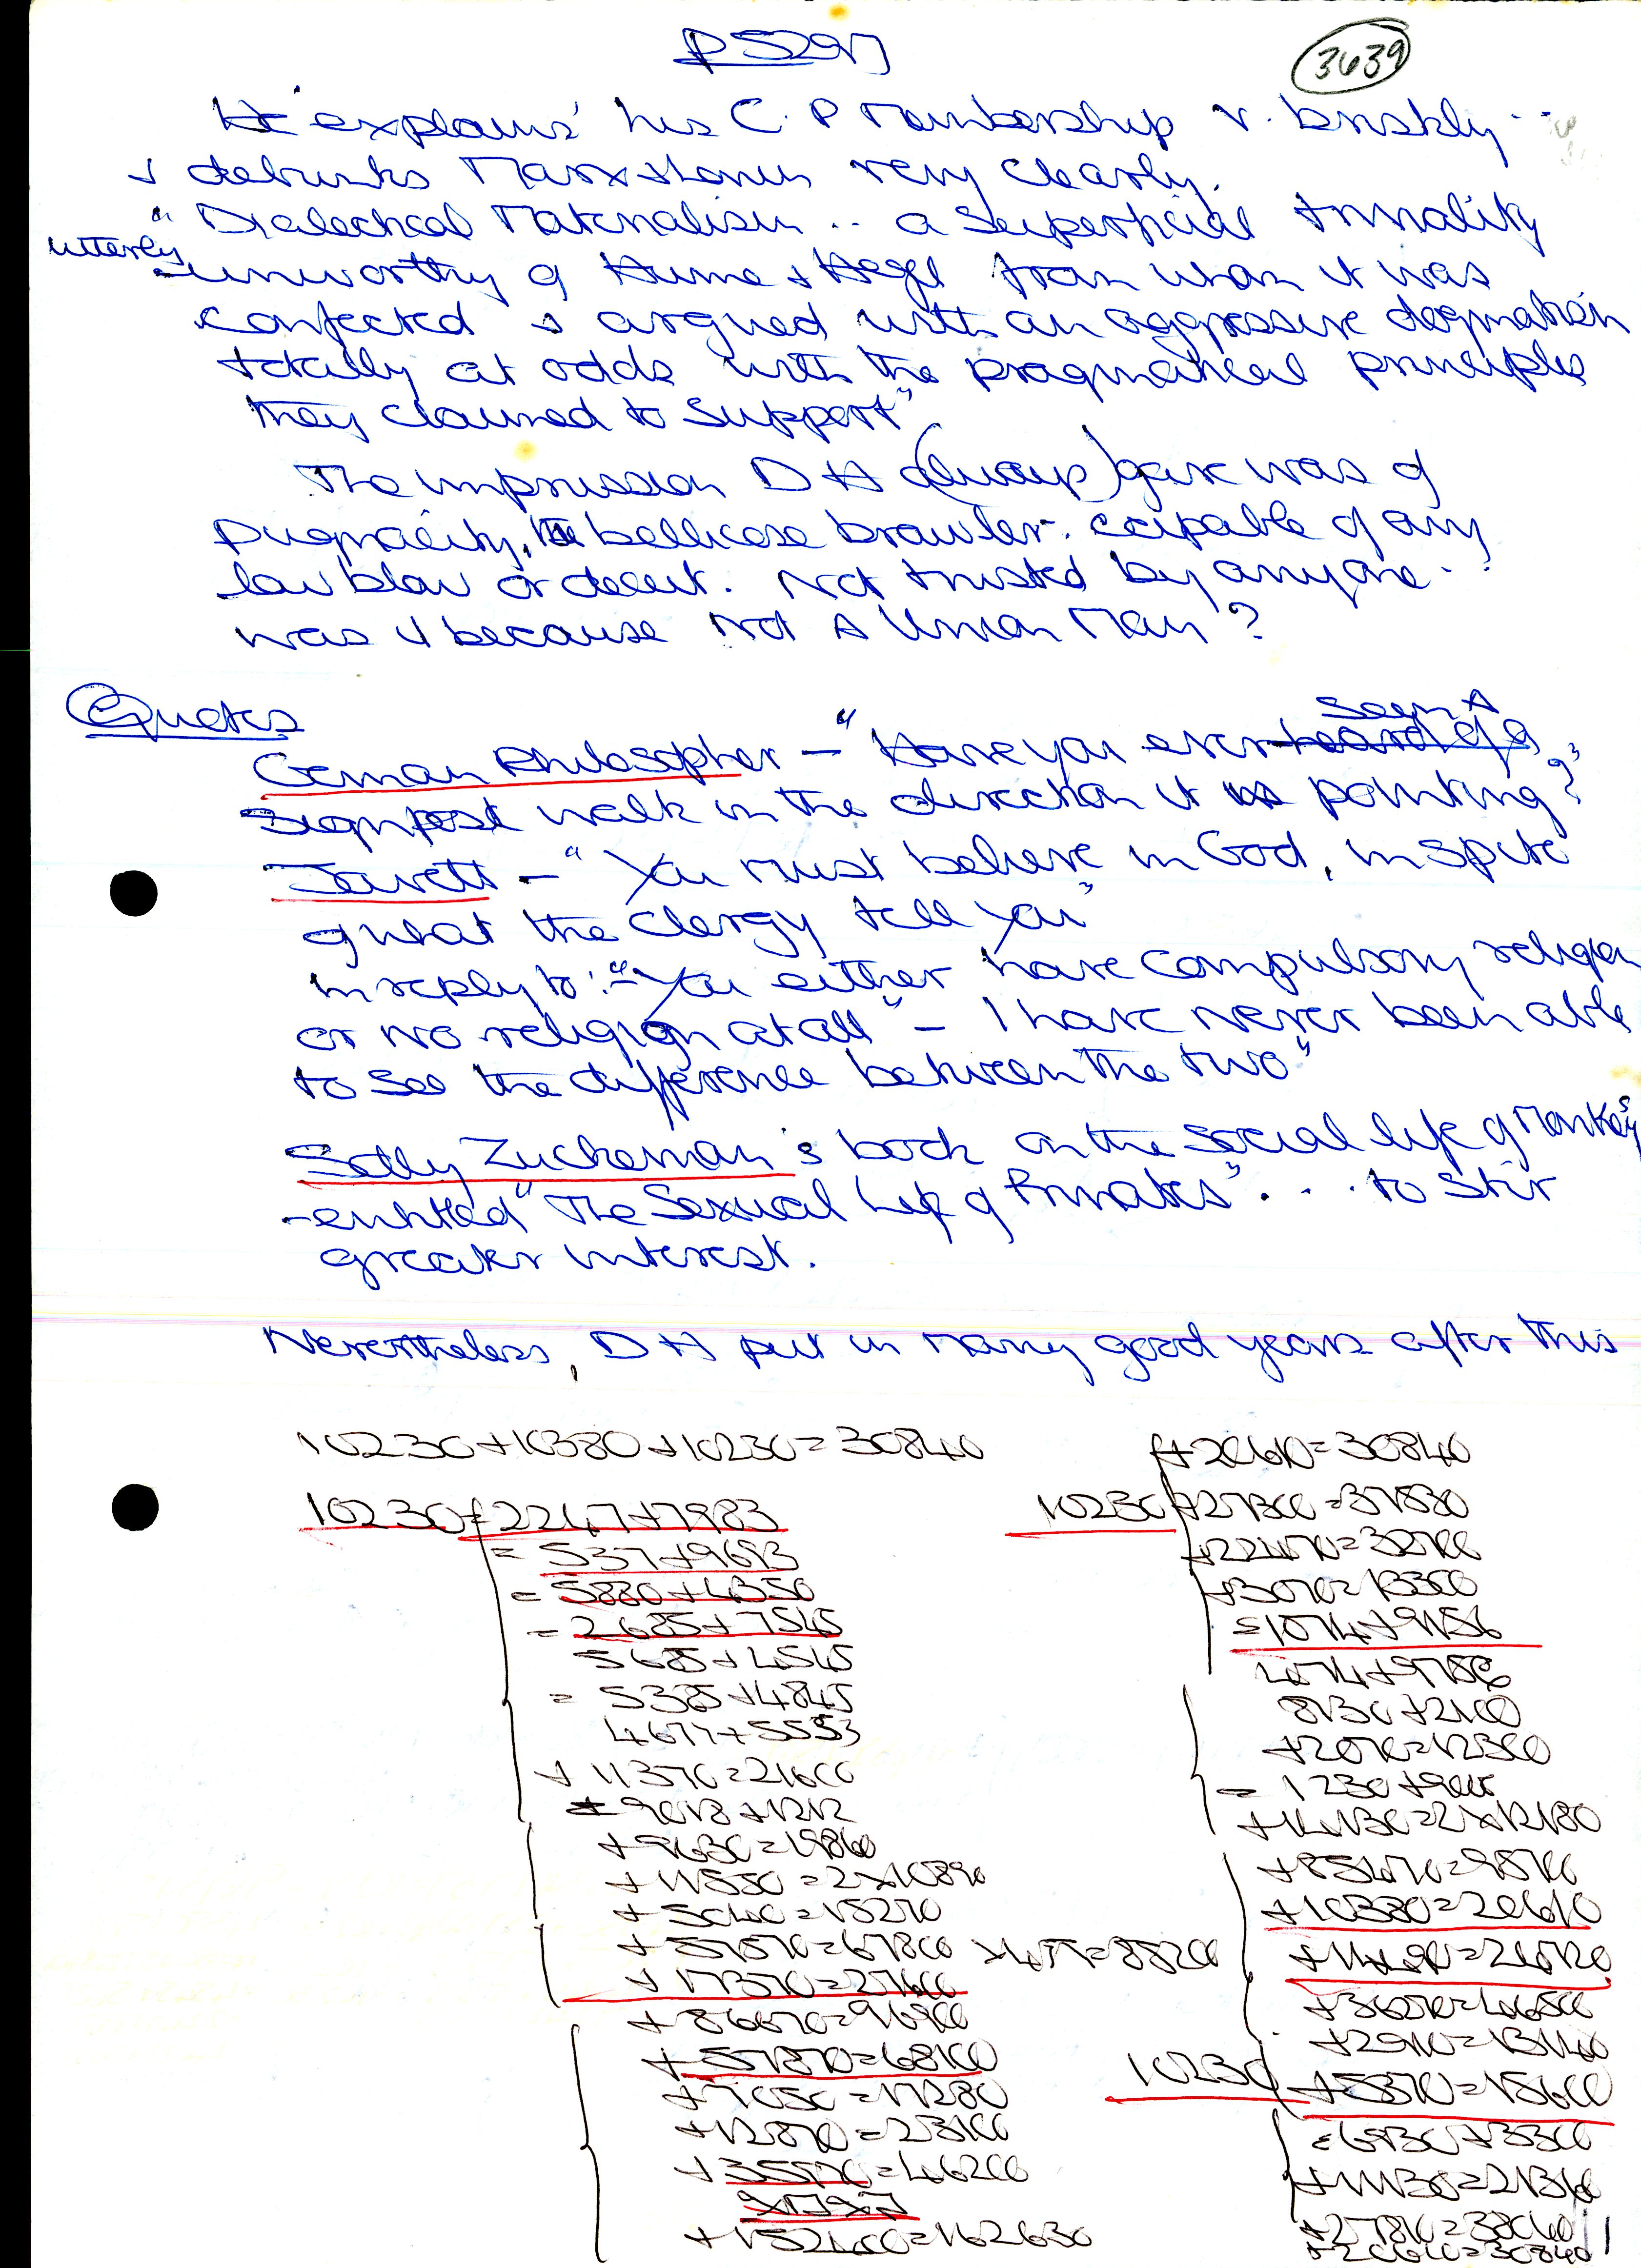 p 529]
3639
He 'explains' his C.P Membership v. briskly..
& debunks Marx & Lenin very clearly.
"Dialectical Materialism .. a superficial triviality
utterly unworthy of Hume & Hegel from whom it was
confected & argued with an aggressive dogmatism
totally at odds with the pragmatical principles
they claimed to support"
The impression DH (always) gave was of
pugnacity, the bellicose brawler. capable of any
low blow or deceit. Not trusted by anyone..
was it because not A Union Man?
Quotes
German Philosopher - "Have you ever heard of a seen A
signpost walk in the direction it is pointing?"
Jowett - "You must believe in God, in spite
of what the clergy tell you"
in reply to: "You either have compulsory religion
or no religion at all" - I have never been able
to see the difference between the two"
Solly Zuckerman's book on the social life of Monkeys
- entitled "The Sexual Life of Primates" . . . to stir
greater interest.
Nevertheless, DH put in many good years after this
10230+10380+10230=30840
10230=2247+7983
=537+9693
=5880+4350
=2685+7545
5685+4545
=5385+4845
4677+5553
+11370=21600
=9018+1212
+9630=19860
+11550=2x10890
+5040=15270
+57570=67800 x4π=88200
+17370=27600
+86670=96900
+57870=68100
+7050=17280
+12870=23100
+35970=46200
+152400=162630
+20610=30840
10230+27300=37530
+22470=32700
+3070=13300
=1074+9156
8130+2100
+2070=12300
=1230+9000
+14130=2x12180
+88470=98700
+10380=20610
+14490=24720
+36270=46500
+2910=13140
10230+5370=15600
=6930+3300
+11130=21360
+27810=38040
+20610=30840